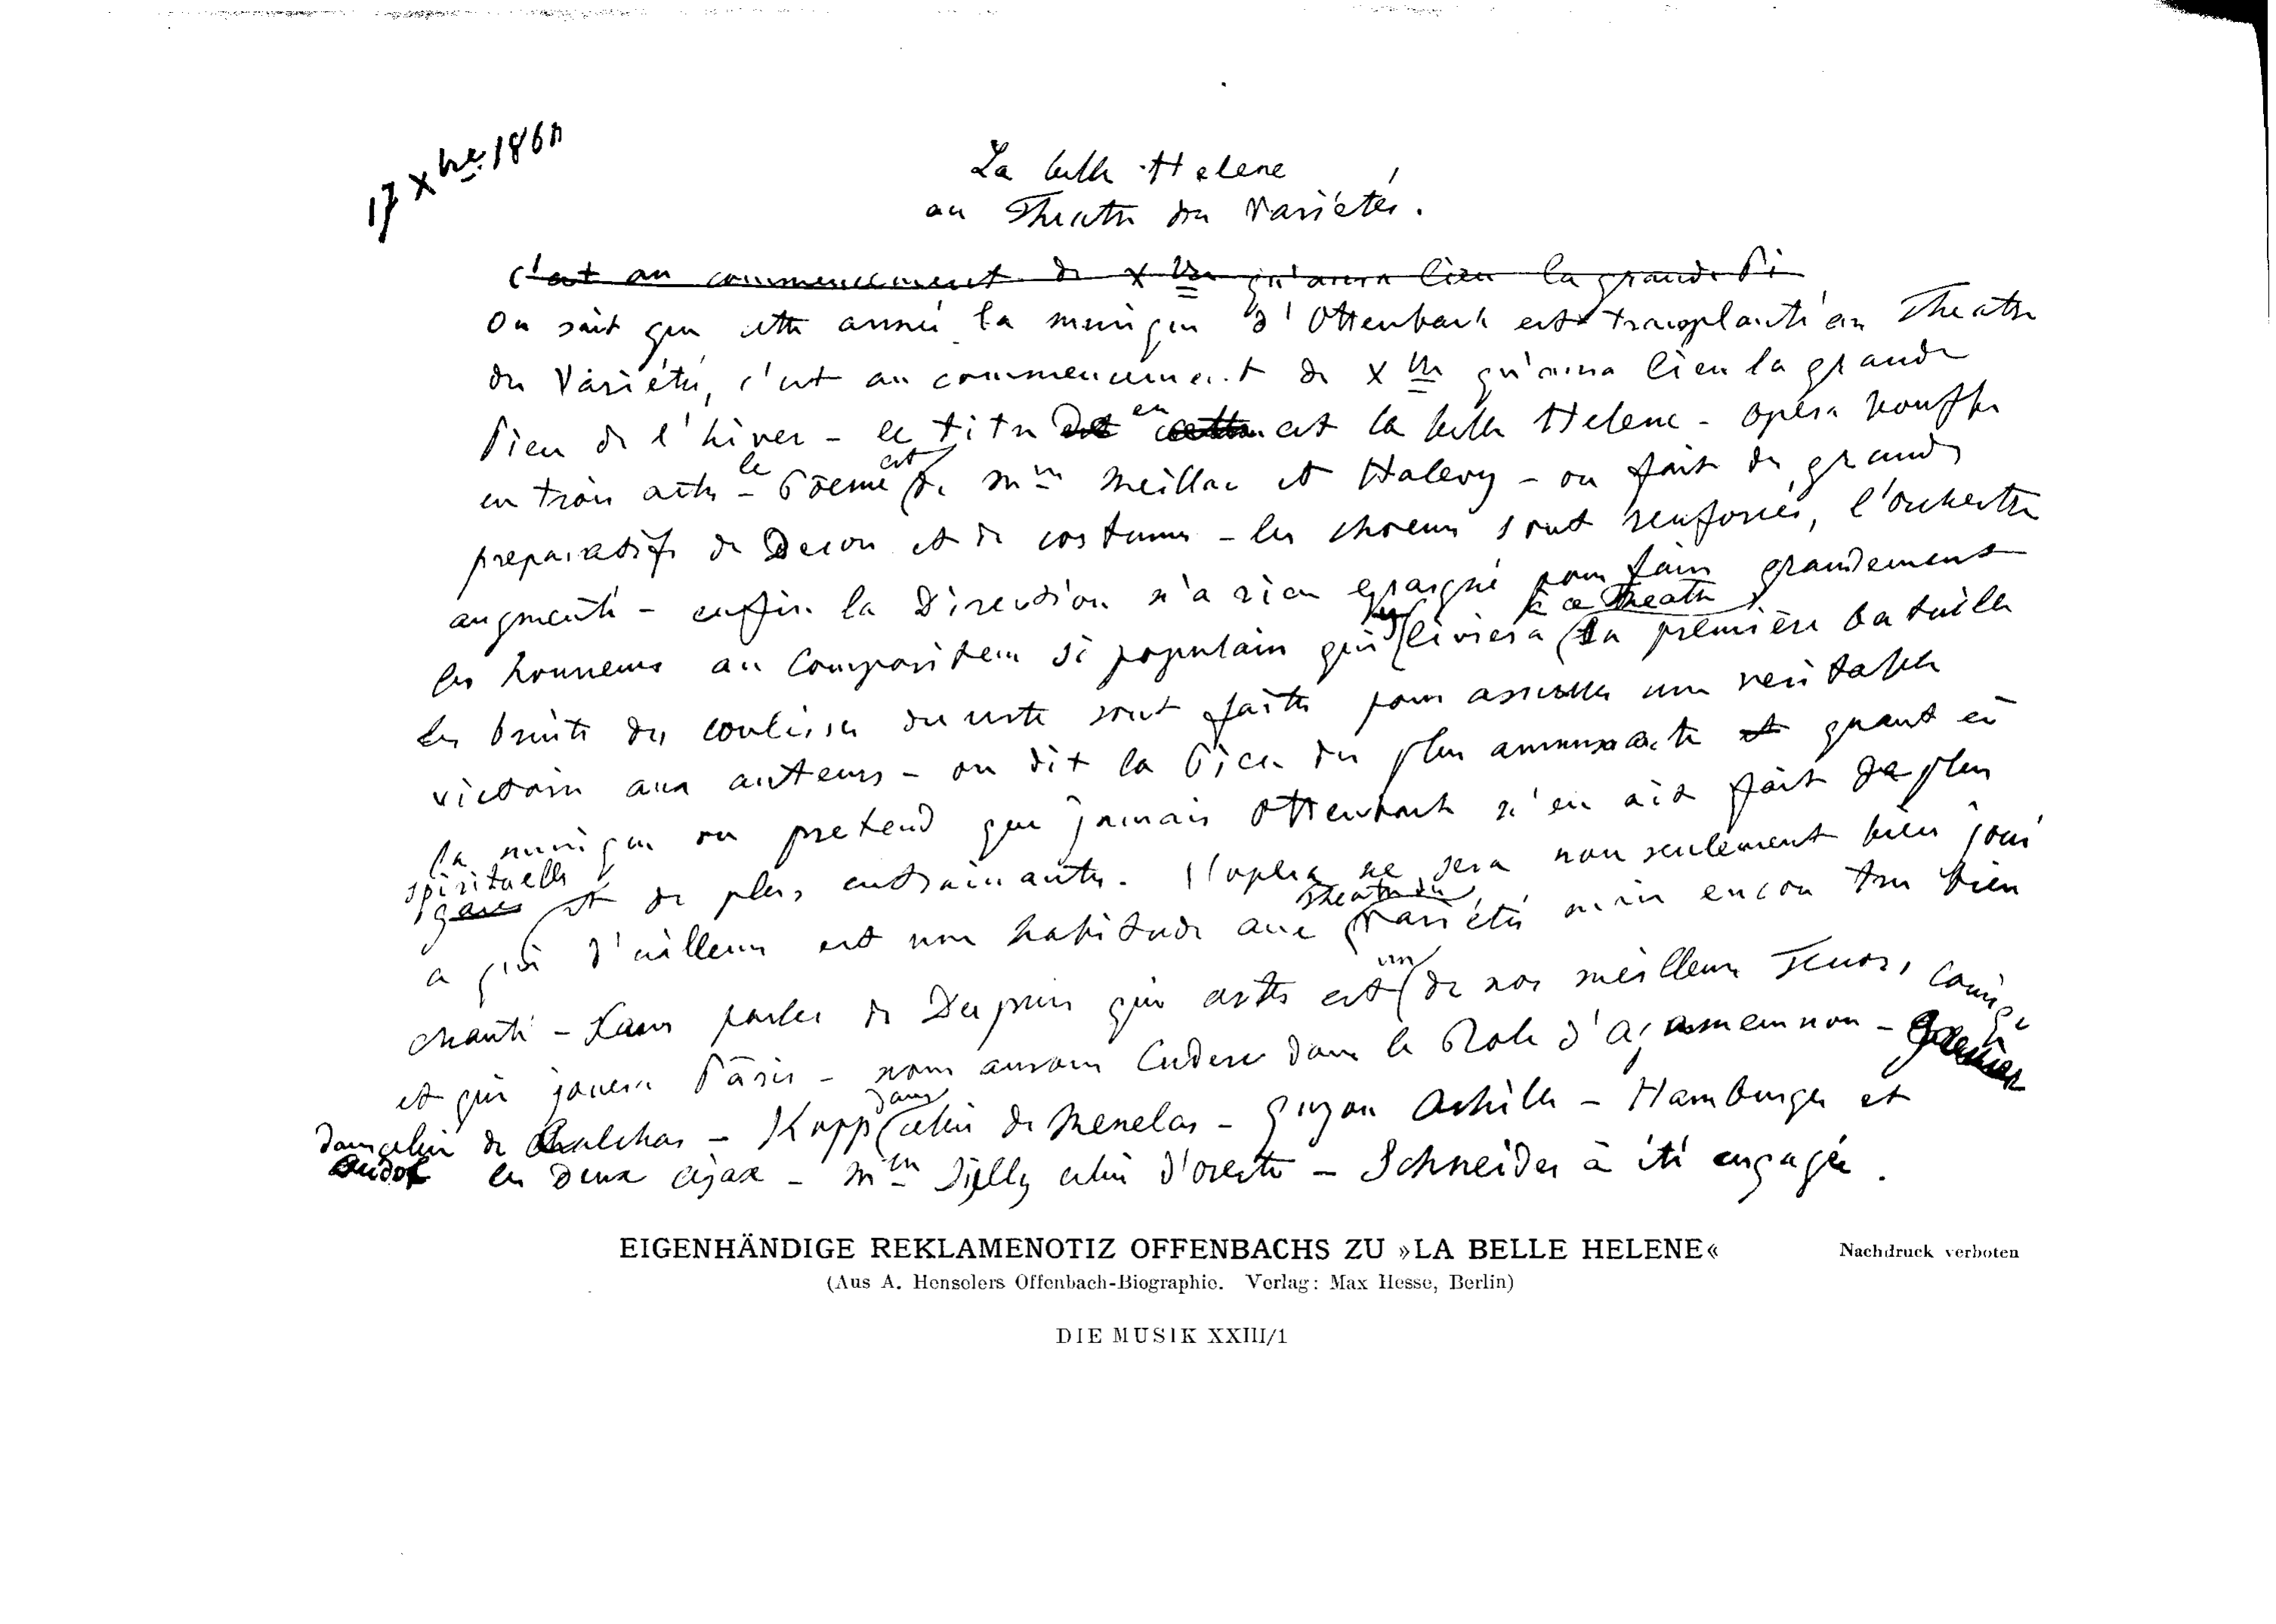 17 Xbre 1864
La belle Helene
au Theatre des Variétés.
c'est au commencement de Xbre qu'aura lieu la grande Pi
On sait que cette année la musique d'Offenbach est transplanté au Theatre
des Variétés, c'est au commencement de Xbre qu'aura lieu la grande
Piece de l'hiver - le titre en est la belle Helene - opéra bouffe
en trois actes - le Poeme est de Mrs Meillac et Halevy - on fait de grands
preparatifs de Decors et de costumes - les choeurs sont renforcés, l'orchestre
augmenté - enfin la Direction n'a rien epargné pour faire grandement
les honneurs au Compositeur si populaire qui y livrera à ce Theatre sa première bataille
les bruits des coulisses du reste sont faits pour assurer une veritable
victoire aux auteurs - on dit la Piece des plus amusante et quant à
la musique on pretend que jamais Offenbach n'en ait fait de plus
spirituelle
gaies et de plus entrainante. l'opera ne sera non seulement bien joué
a qui d'ailleurs est une habitude aux Theatre des Variétés mais encore tres bien
chanté - Sans parler de Dupuis qui certes est un de nos meilleurs Tenors comique
et qui jouera Pâris - nous aurons Couderc dans le Role d'agamemnon - Grenier
dans celui de Calchas - Kopp dans celui de Menelas - Guyon Achille - Hamburger et
Andof les Deux ajax - Mlle Silly celui d'oreste - Schneider à été engagée.
EIGENHÄNDIGE REKLAMENOTIZ OFFENBACHS ZU »LA BELLE HELENE«
Nachdruck verboten
(Aus A. Henselers Offenbach-Biographie. Verlag: Max Hesse, Berlin)
DIE MUSIK XXIII/1